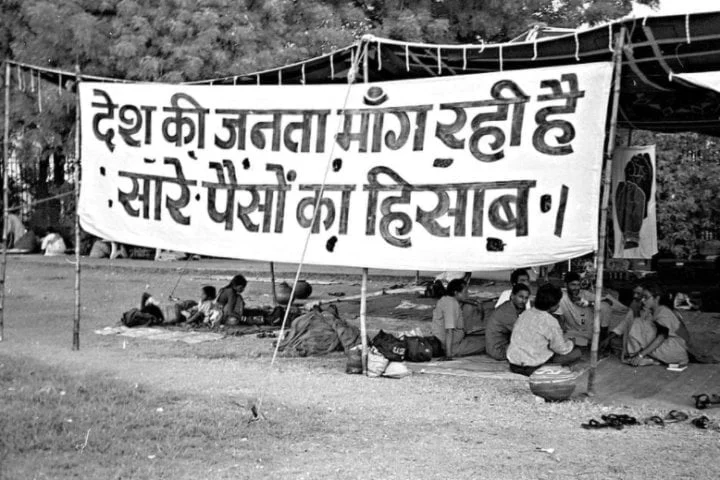 देश की जनता माँग रही है
सारे पैसों का हिसाब।